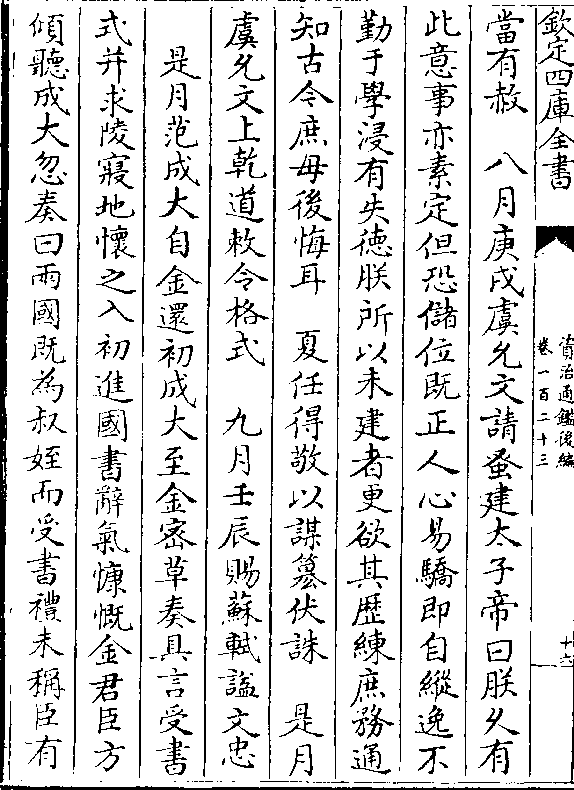 欽定四庫全書
資治通鑑後編
卷一百二十三
十六
當有赦　八月庚戌虞允文請蚤建太子帝曰朕久有
此意事亦素定但恐儲位既正人心易驕即自縱逸不
勤于學浸有失德朕所以未建者更欲其歴練庶務通
知古今庶毋後悔耳　夏任得敬以謀簒伏誅　是月
虞允文上乾道敕令格式　九月壬辰賜蘇軾諡文忠
是月范成大自金還初成大至金宻草奏具言受書
式并求陵寢地懷之入初進國書辭氣慷慨金君臣方
傾聽成大忽奏曰兩國既為叔姪而受書禮未稱臣有